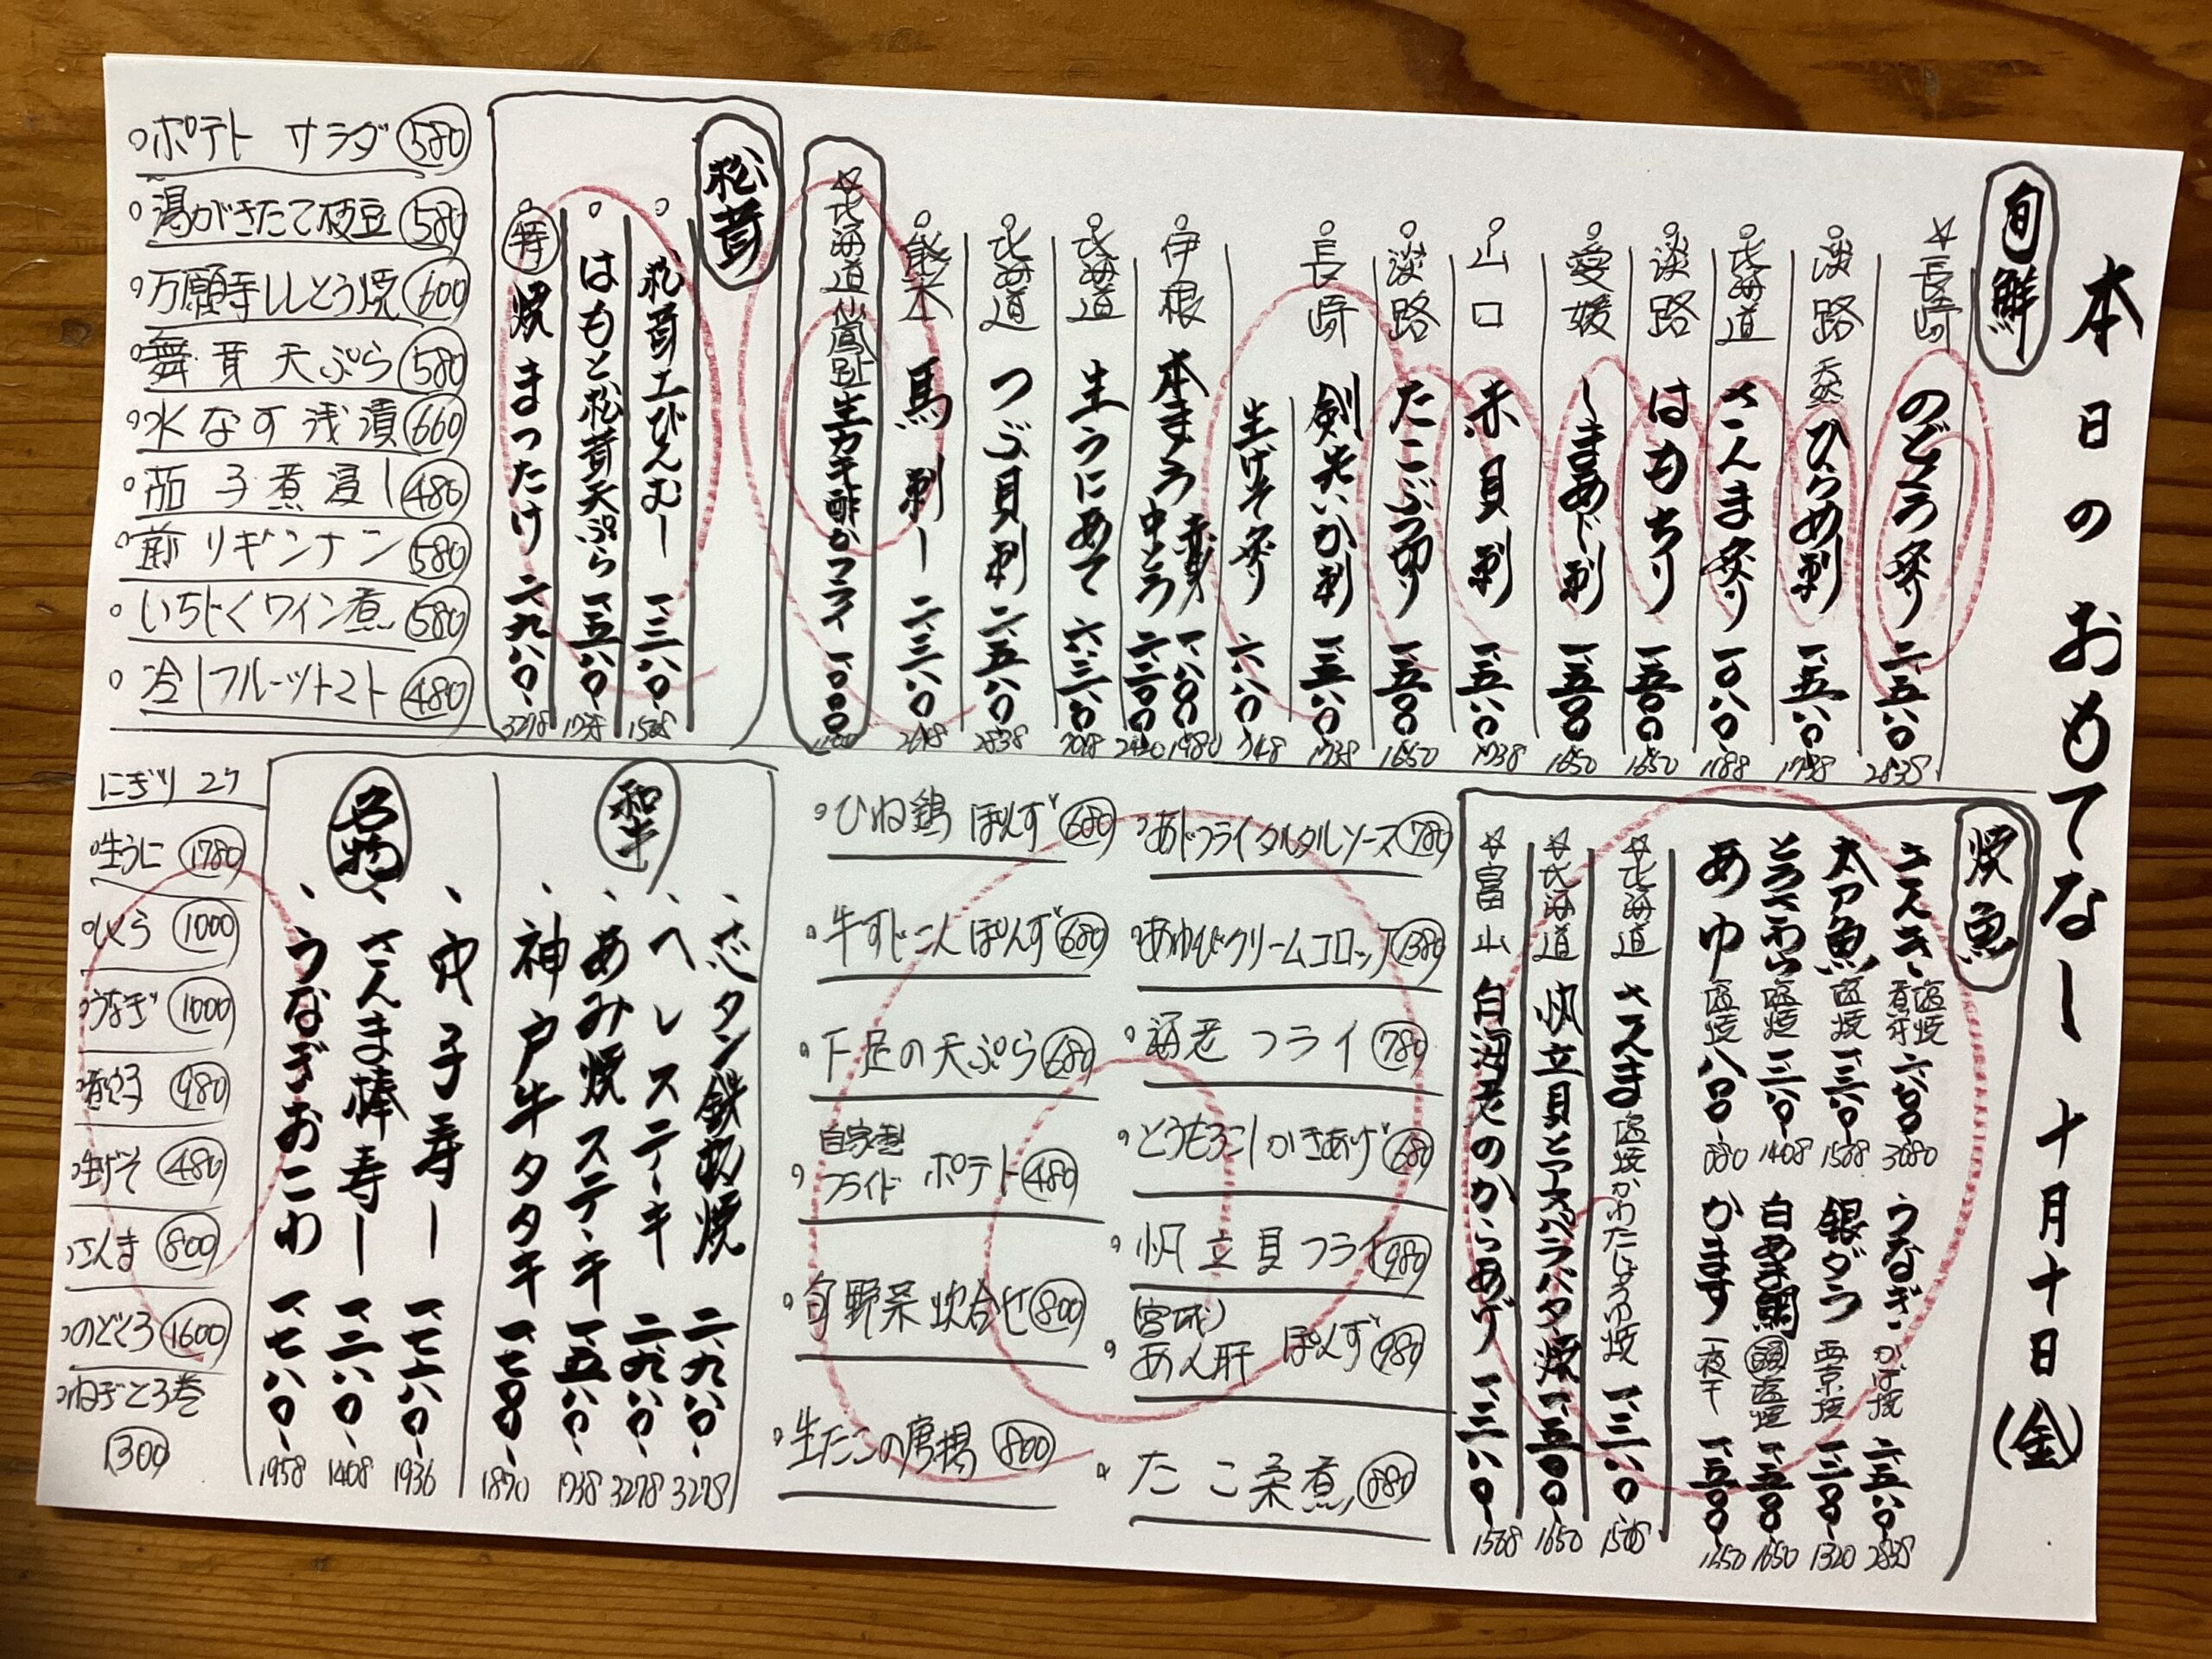 本日のおもてなし 十月十日(金)
旬鮮
☆長崎 のどぐろ炙り 二、五八〇 2838
淡路 天然 ひらめ刺 一、五八〇 1738
北海道 さんま炙り 一〇八〇 1188
淡路 はもちり 一、五〇〇 1650
愛媛 しまあじ刺 一、五〇〇 1650
山口 赤貝刺 一、五八〇 1738
淡路 たこぶつ切り 一、五〇〇 1650
長崎 剣先いか刺 一、五八〇 1738
生げそ炙り 六八〇 748
伊根 本まぐろ 赤身 一、八〇〇 1980
中とろ 二、二〇〇 2420
北海道 生うにあて 六、三八〇 7018
北海道 つぶ貝刺 二、五八〇 2838
熊本 馬刺し 二、三八〇 2618
☆北海道仙鳳趾 生カキ酢かフライ 一、〇〇〇 1100
松茸
松茸土びんむし 一、三八〇 1518
はもと松茸天ぷら 一、五八〇 1738
特 焼まつたけ 二、九八〇 3278
ポテトサラダ 580
湯がきたて枝豆 580
万願寺ししとう焼 600
舞茸天ぷら 580
水なす浅漬 660
茄子煮浸し 480
煎りギンナン 580
いちじくワイン煮 580
冷しフルーツトマト 480
焼魚
すずき 塩焼 香草焼 二、八〇〇 3080
太刀魚 塩焼 一、三八〇 1518
とろさわら 塩焼 一、二八〇 1408
あゆ 塩焼 八〇〇 880
うなぎ かば焼 二、五八〇 2838
銀ダラ 西京焼 一、二〇〇 1320
白あま鯛 頭 塩焼 一、五〇〇 1650
かます 一夜干 一、五〇〇 1650
☆北海道 さんま 塩焼かわたじょうゆ焼 一、三八〇 1518
☆北海道 帆立貝とアスパラバター焼 一、五〇〇 1650
☆富山 白海老のからあげ 一、三八〇 1518
あじフライタルタルソース 780
あゆびクリームコロッケ 1380
海老フライ 780
とうもろこしかきあげ 680
帆立貝フライ 980
(宮城) あん肝ぽんず 980
たこ柔煮 880
ひね鶏ぽんず 680
牛すじこんぽんず 680
下足の天ぷら 680
自家製 フライドポテト 480
旬野菜炊合せ 800
生たこの唐揚 800
和牛
芯タン鉄板焼 二、九八〇 3278
ヘレステーキ 二、九八〇 3278
あみ焼ステーキ 一、五八〇 1738
神戸牛タタキ 一、七〇〇 1870
名物
穴子寿し 一、七六〇 1936
さんま棒寿し 一、二八〇 1408
うなぎおこわ 一、七八〇 1958
にぎり 2ケ
生うに 1780
いくら 1000
うなぎ 1000
煮穴子 980
生げそ 480
さんま 800
のどぐろ 1600
ねぎとろ巻
1300